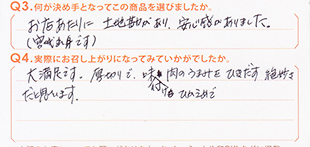 Q3.何が決め手となってこの商品を選びましたか。
お店あたりに土地勘があり、安心感がありました。
(宮城出身です)
Q4.実際にお召し上がりになってみていかがでしたか。
大満足です。厚切りで、味付けひかえめで
肉のうまみをひきだす絶妙さ
だと思います。